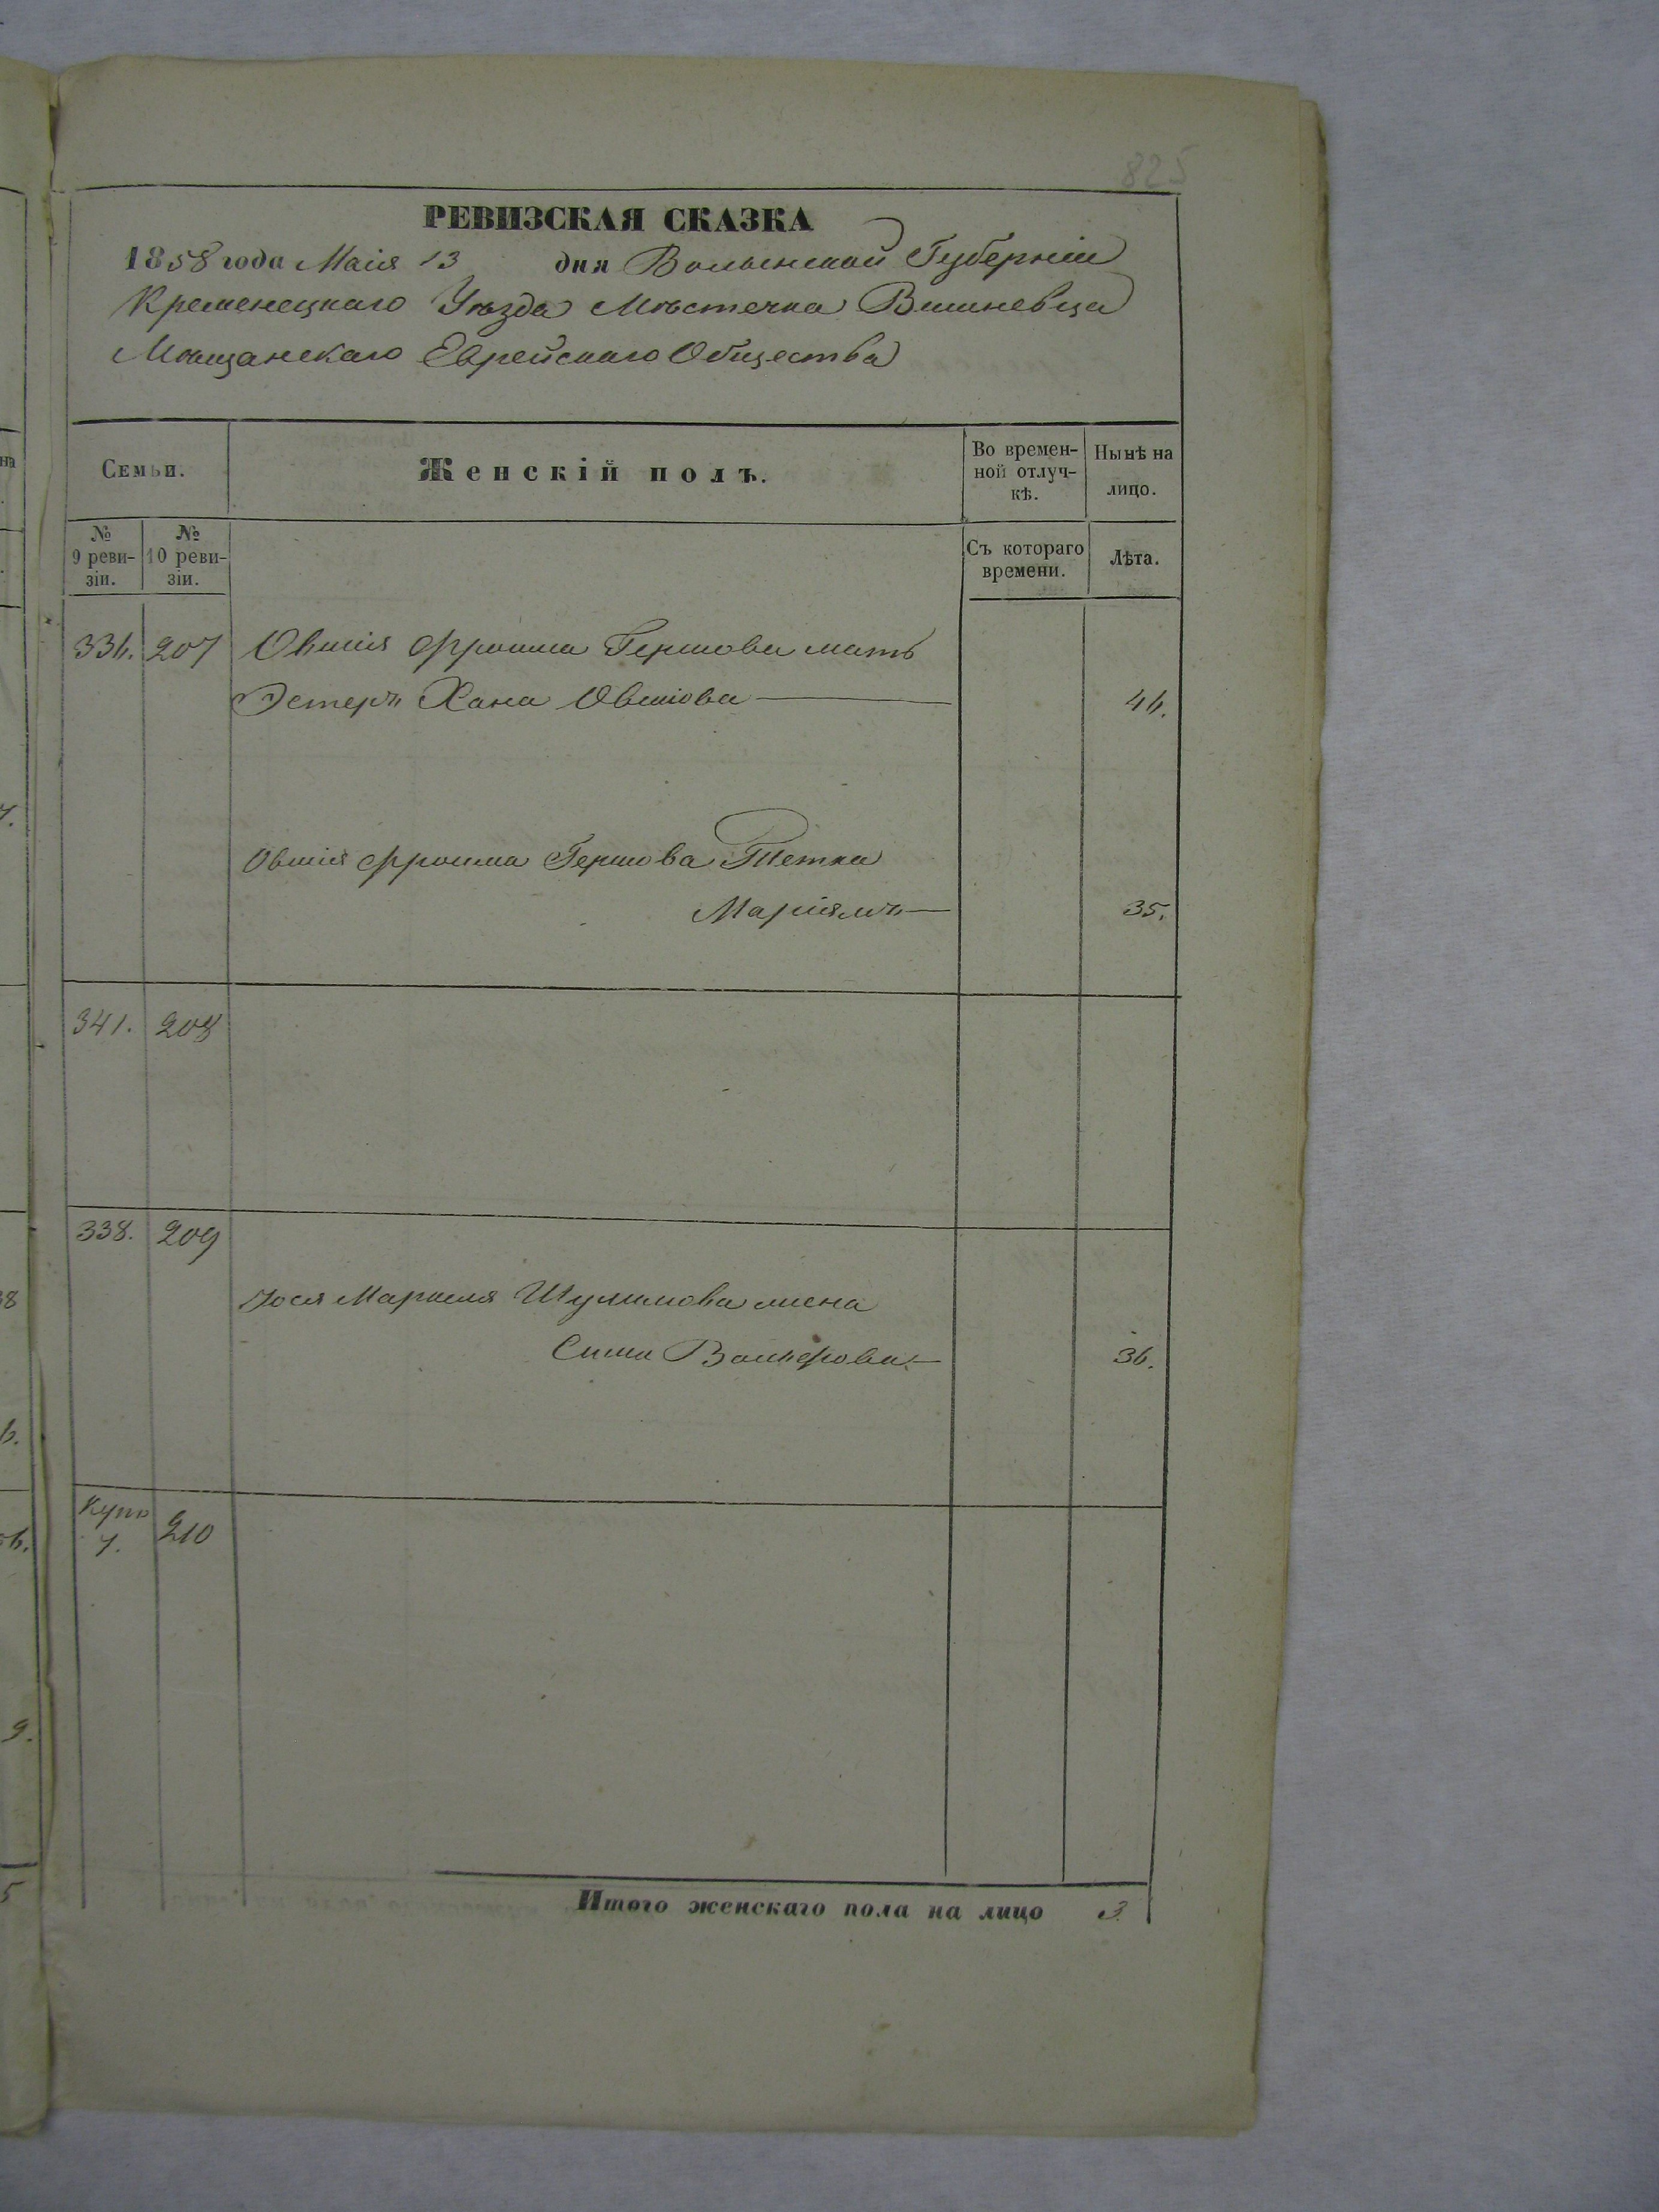 825
РЕВИЗСКАЯ СКАЗКА
1858 года Маія 13 дня Волынской Губерніи
Кременецкаго Уѣзда Мѣстечка Вишневца
Мѣщанскаго Еврейскаго Общества
Семьи.
Женскій полъ.
Во времен-
ной отлуч-
кѣ.
Нынѣ на
лицо.
№
9 реви-
зіи.
№
10 реви-
зіи.
Съ котораго
времени.
Лѣта.
336. 207 Овшія Фроима Гершова мать
Эстеръ Хана Овшіова 46.
Овшія Фроима Гершова Тетка
Маріямъ 35.
341. 208
338. 209
Іося Маркеля Шулимова жена
Сима 36.
Купч 210
7.
Итого женскаго пола на лицо 3.